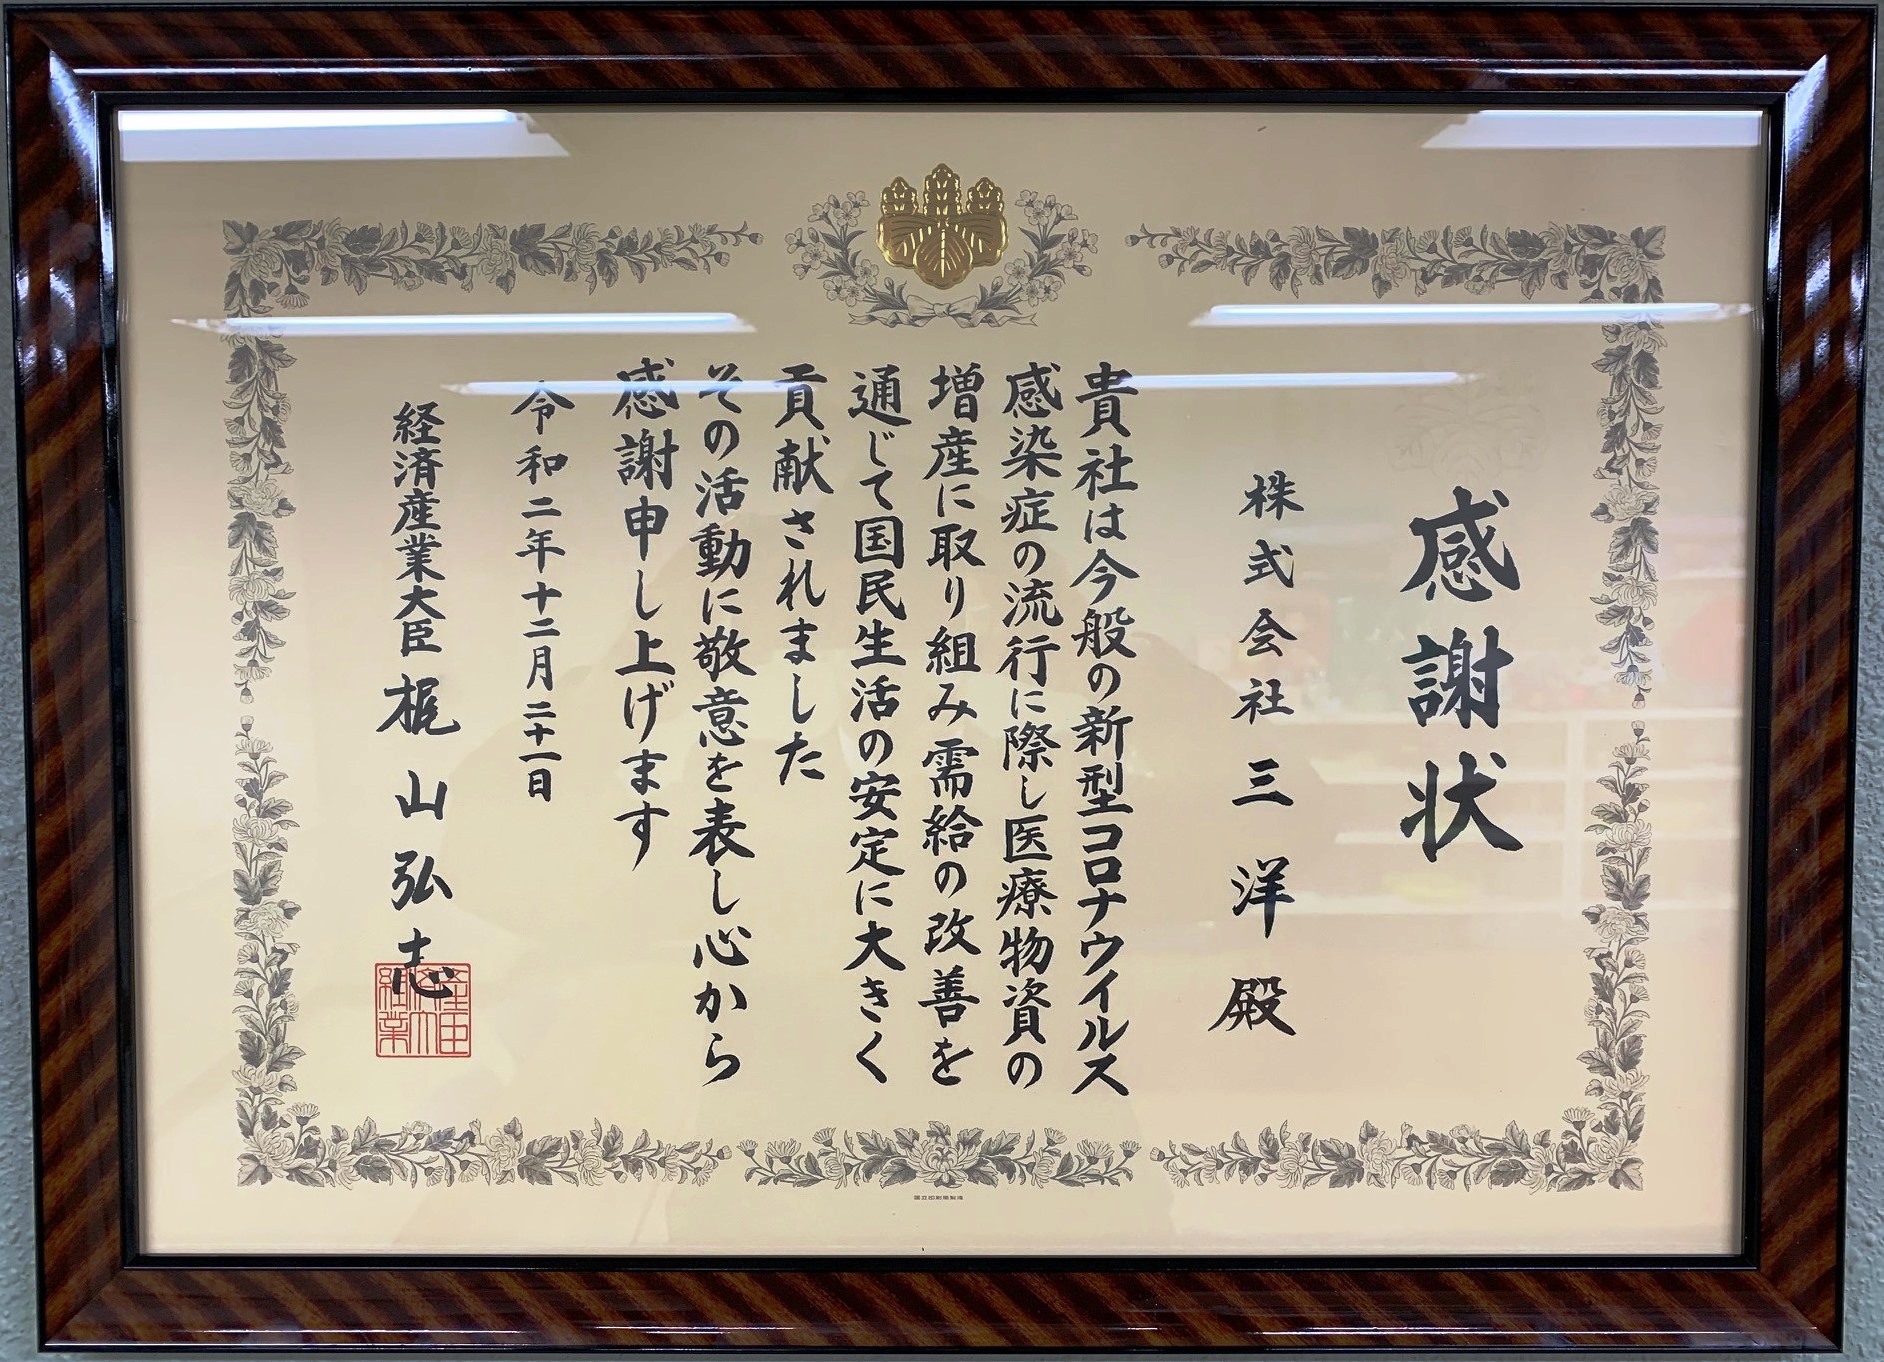 感謝状
株式会社三洋殿
貴社は今般の新型コロナウイルス
感染症の流行に際し医療物資の
増産に取り組み需給の改善を
通じて国民生活の安定に大きく
貢献されました
その活動に敬意を表し心から
感謝申し上げます
令和二年十二月二十一日
経済産業大臣 梶山弘志